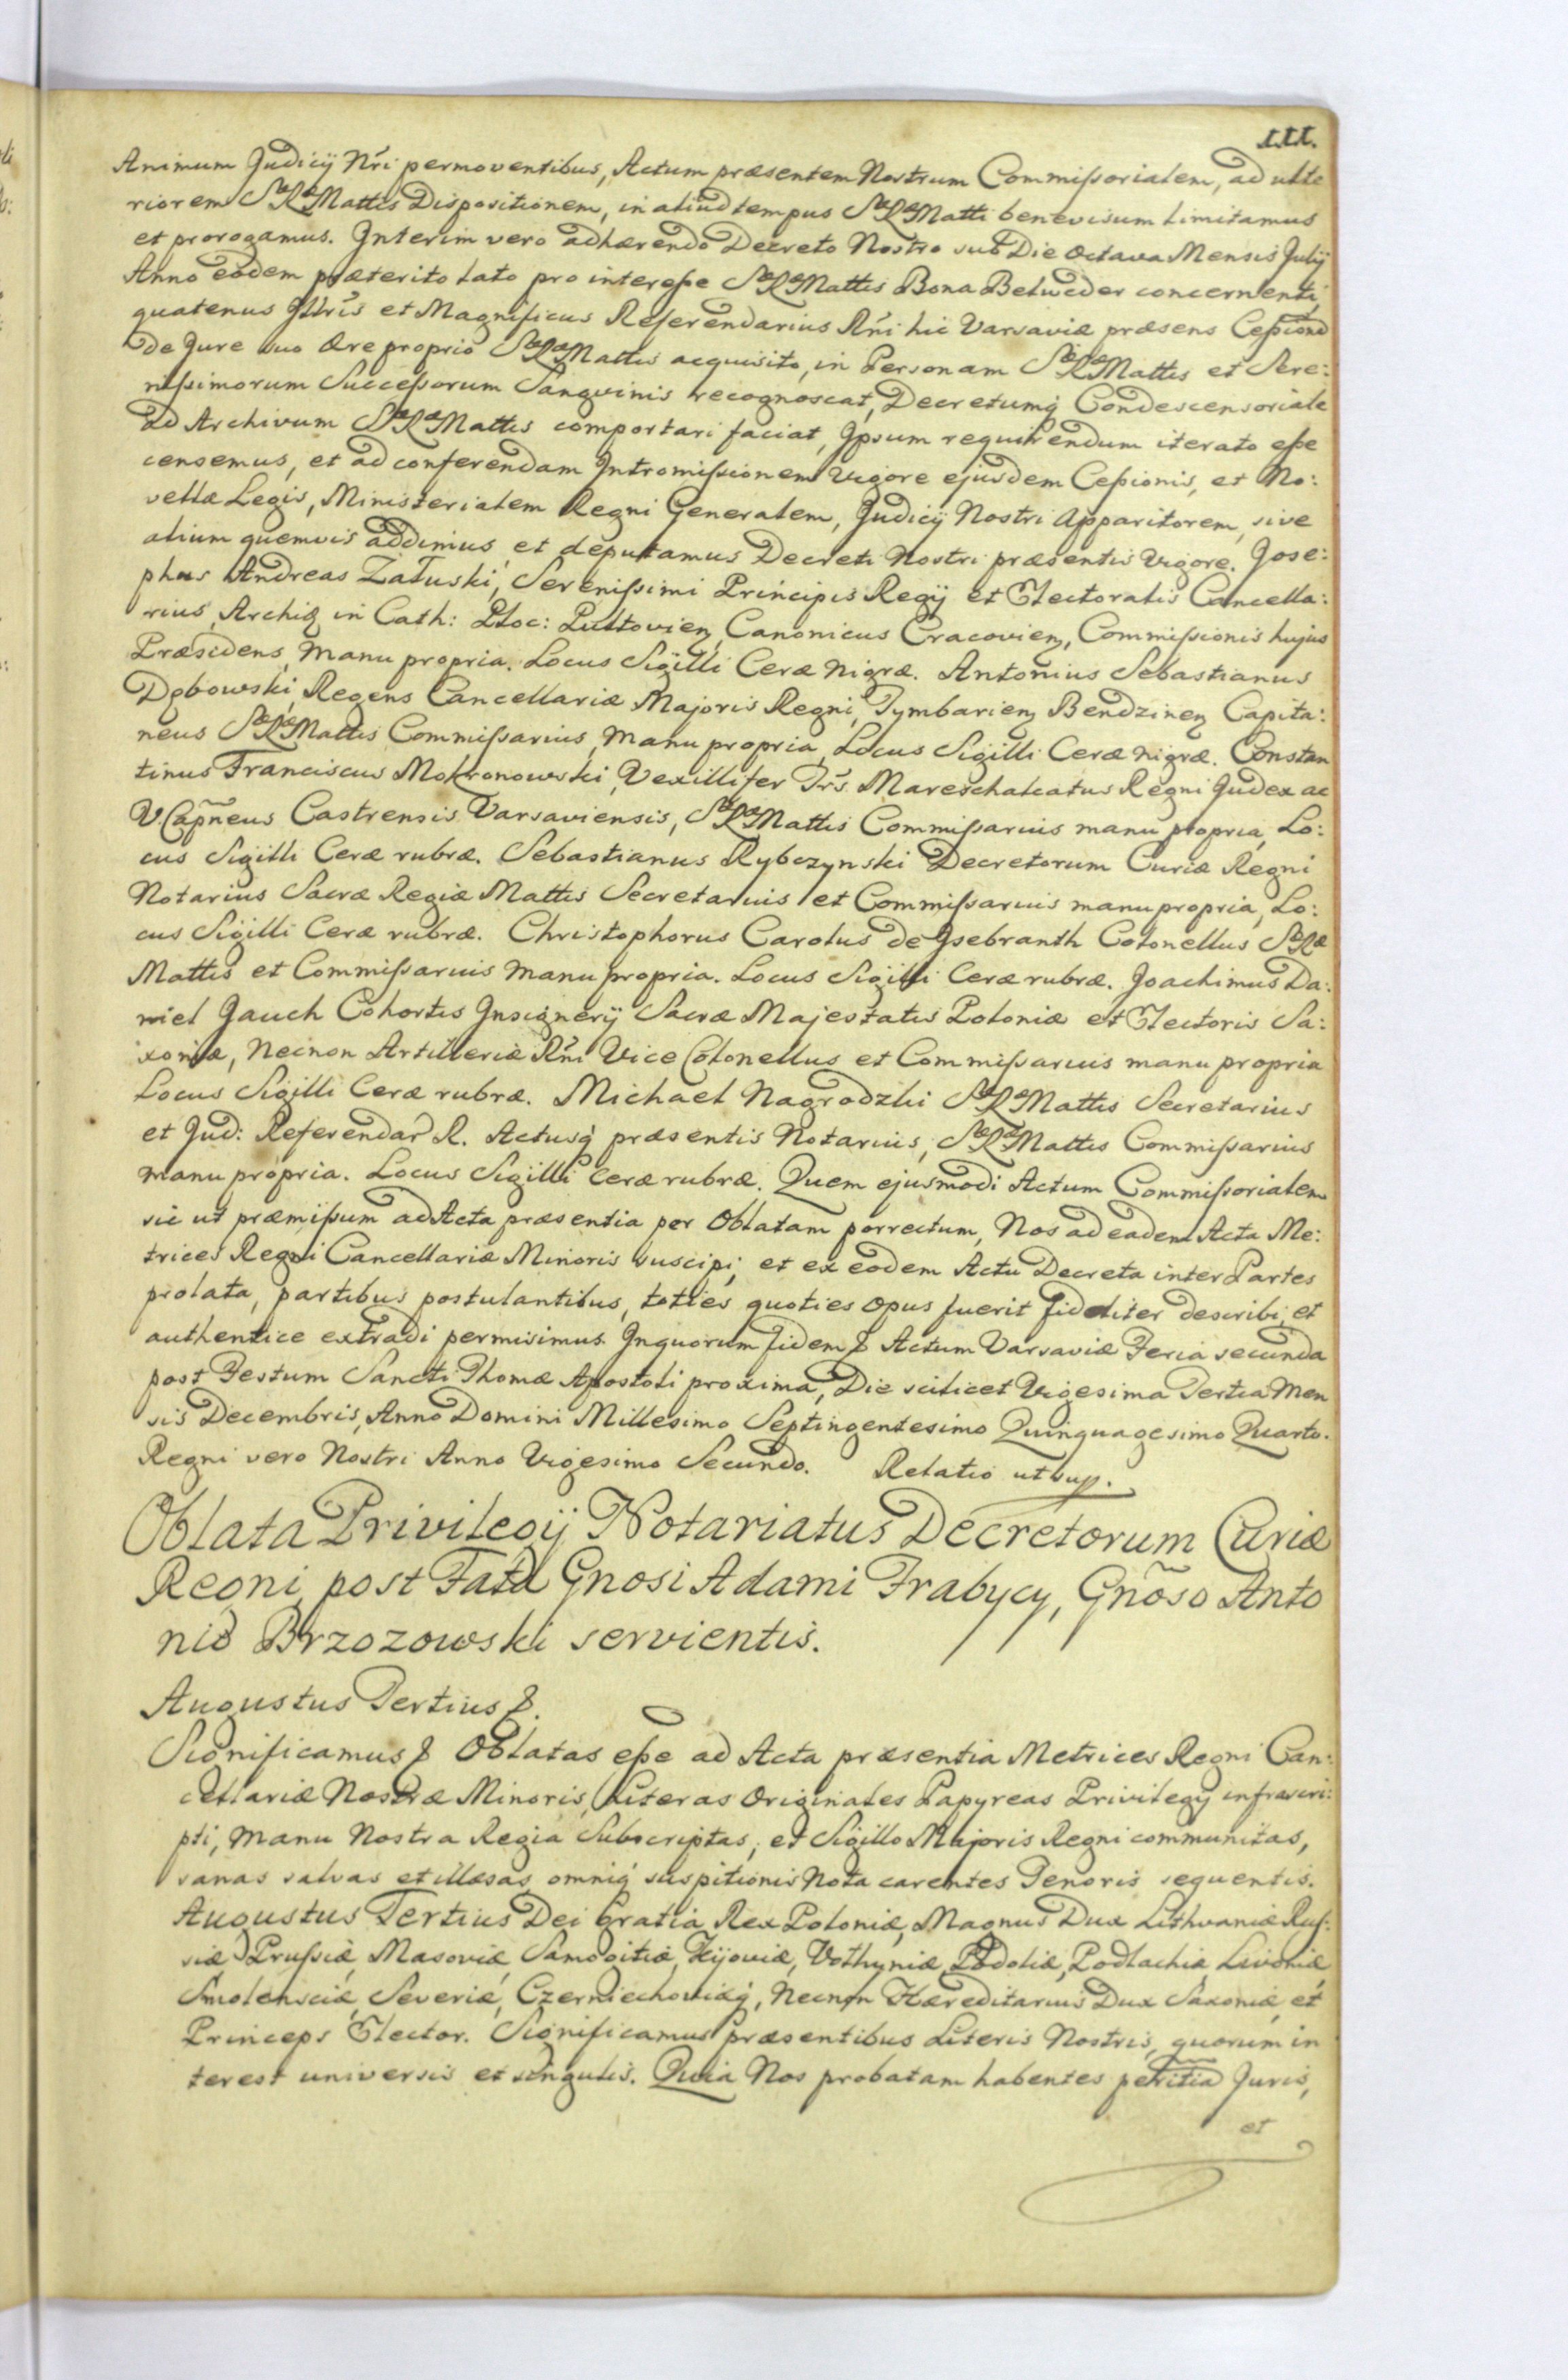 111.
Animum Judicij Nri permoventibus, Actum præsentem Nostrum Commissorialem, ad ulte
riorem SæRæMattis Dispositionem, in aliud tempus SæRæMatti benevisum limitamus
et prorogamus. Interim vero adhærendo Decreto Nostro sub Die Octava Mensis Julij
Anno eodem præterito lato pro interesse SæRæMattis Bona Belweder concernenti,
quatenus Illris et Magnificus Referendarius Rni hic Varsaviæ præsens Cessionē
de Jure suo Ære proprio SæRæMattis acquisito, in Personam SæRæMattis et Sere:
nissimorum Successorum Sangvinis recognoscat, Decretumq Condescensoriale
ad Archivum SæRæMattis comportari faciat, Ipsum requirendum iterato esse
censemus, et ad conferendam Intromissionem Vigore ejusdem Cessionis, et No:
vellæ Legis, Ministerialem Regni Generalem, Judicij Nostri Apparitorem, sive
alium quemvis addimus, et deputamus Decreti Nostri præsentis Vigore. Jose:
phus Andreas Załuski, Serenissimi Principis Regij et Electoralis Cancella:
rius, Archiq in Cath: Ploc: Pultovienq, Canonicus Cracovienq, Commissionis hujus
Præsidens, Manu propria. Locus Sigilli Ceræ Nigræ. Antonius Sebastianus
Dębowski, Regens Cancellariæ Majoris Regni, Tymbarienq Bendzinenq Capita:
neus SæRæMattis Commissarius, Manu propria, Locus Sigilli Ceræ nigræ. Constan
tinus Franciscus Mokronowski, Vexillifer Trs. Mareschalcatus Regni Judex ac
V Capneus Castrensis Varsaviensis, SæRæMattis Commissarius manu propria, Lo:
cus Sigilli Ceræ rubræ. Sebastianus Rybczynski Decretorum Curiæ Regni
Notarius Sacræ Regiæ Mattis Secretarius et Commissarius manu propria, Lo:
cus Sigilli Ceræ rubræ. Christophorus Carolus de Isebranth Colonellus SæRæ
Mattis et Commissarius Manu propria. Locus Sigilli Ceræ rubræ. Joachimus Da:
niel Jauch Cohortis Insignerij Sacræ Majestatis Poloniæ et Electoris Sa:
xoniæ, Necnon Artilleriæ Rni Vice Colonellus et Commissarius manu propria
Locus Sigilli Ceræ rubræ. Michael Nagrodzki SæRæMattis Secretarius
et Jud: Referendar R. Actusq præsentis Notarius, SæRæMattis Commissarius
manu propria. Locus Sigilli Ceræ rubræ. Quem ejusmodi Actum Commissorialem
sic ut præmissum ad Acta præsentia per Oblatam porrectum, Nos ad eadem Acta Me:
trices Regni Cancellariæ Minoris suscipi, et ex eodem Actu Decreta inter Partes
prolata, partibus postulantibus, toties quoties opus fuerit fideliter describi, et
authentice extradi permisimus. In quorum fidem & Actum Varsaviæ Feria secunda
post Festum Sancti Thomæ Apostoli proxima, Die scilicet Vigesima Tertia Men
sis Decembris, Anno Domini Millesimo Septingentesimo Quinquagesimo Quarto.
Regni vero Nostri Anno Vigesimo Secundo. Relatio ut sup.
Oblata Privilegij Notariatus Decretorum Curiæ
Regni, post Fata Gnosi Adami Frabycy, Gnoso Anto
nio Brzozowski servientis.
Augustus Tertius &.
Significamus & Oblatas esse ad Acta præsentia Metrices Regni Can:
cellariæ Nostræ Minoris, Literas Originales Papyreas Privilegij infrascri:
pti, Manu Nostra Regia Subscriptas, et Sigillo Majoris Regni communitas,
sanas salvas et illæsas, omniq suspitionis Nota carentes Tenoris sequentis.
Augustus Tertius Dei Gratia Rex Poloniæ, Magnus Dux Lithvaniæ Rus:
siæ Prussiæ, Masoviæ, Samogitiæ, Kijoviæ, Volhyniæ, Podoliæ, Podlachiæ Livoniæ
Smolensciæ, Severiæ, Czerniechoviæq, Necnon Hæreditarius Dux Saxoniæ, et
Princeps Elector. Significamus præsentibus Literis Nostris, quorum in
terest universis et singulis. Quia Nos probatam habentes peritia Juris,
et